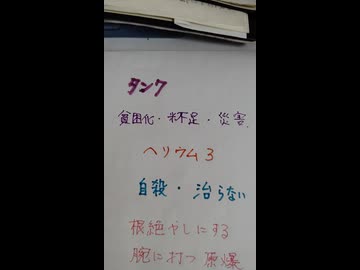 タンク
貧困化・米不足・災害
ヘリウム3
自殺・治らない
根絶やしにする
腕に打つ原爆